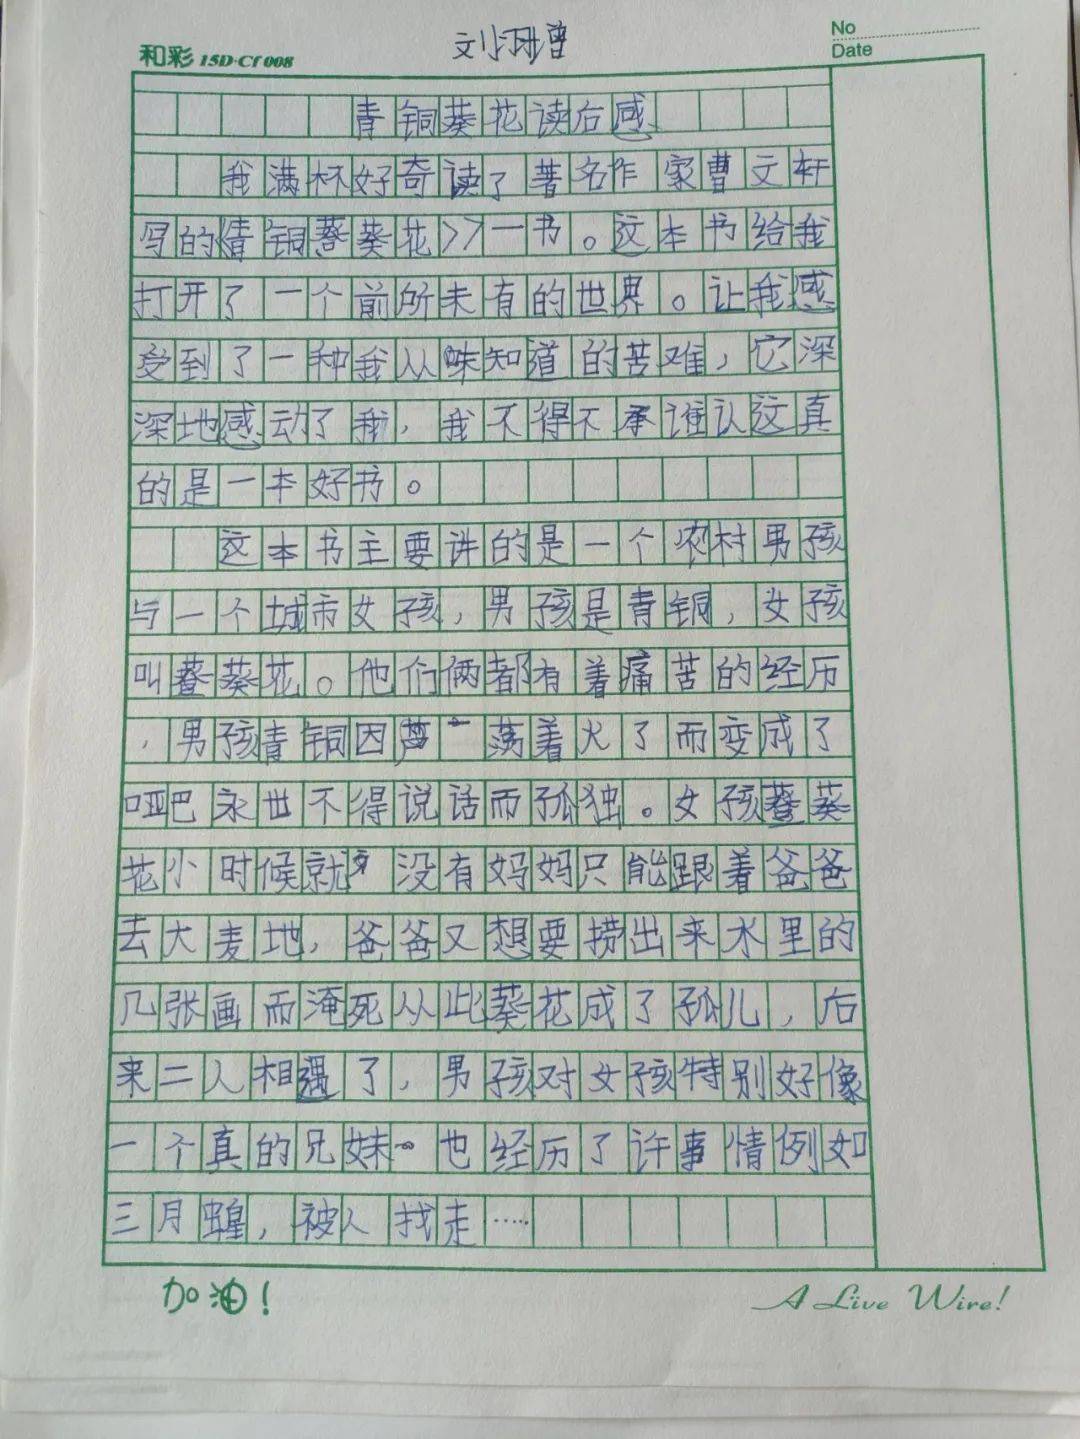 和彩 15D-Cf 008
No
Date
青铜葵花读后感
我满怀好奇读了著名作家曹文轩
写的《青铜葵葵花>>一书。这本书给我
打开了一个前所未有的世界。让我感
受到了一种我从味知道的苦难，它深
深地感动了我，我不得不承认这真
的是一本好书。
这本书主要讲的是一个农村男孩
与一个城市女孩，男孩是青铜，女孩
叫葵花。他们俩都有着痛苦的经历
，男孩青铜因芦荡着火了而变成了
哑巴永世不得说话而孤独。女孩葵
花小时候就没有妈妈只能跟着爸爸
去大麦地，爸爸又想要捞出来水里的
几张画而淹死从此葵花成了孤儿，后
来二人相遇了，男孩对女孩特别好像
一个真的兄妹。也经历了许事情例如
三月蝗，被人找走……
加油！
A Live Wire!